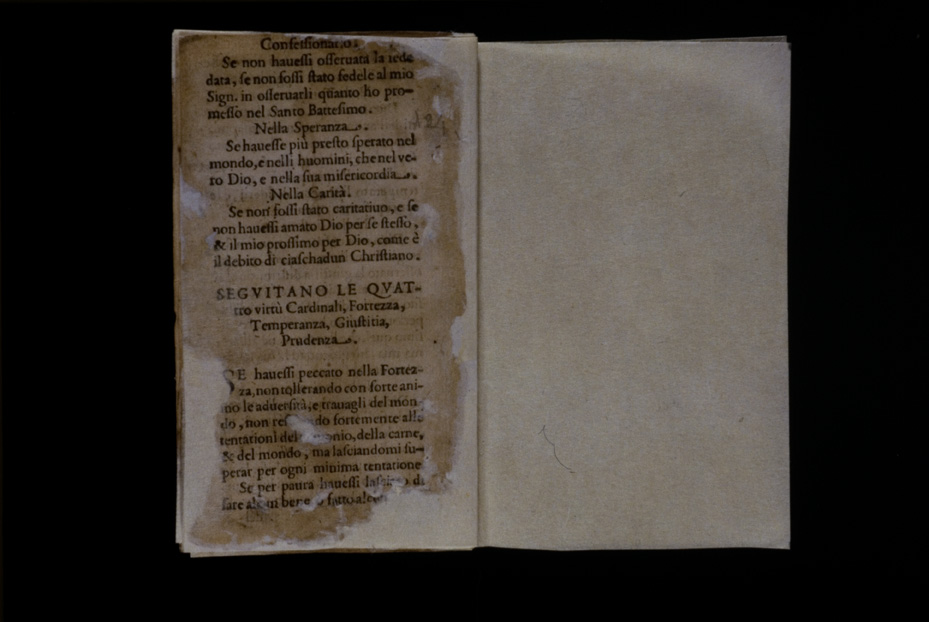 Confessionario.
Se non hauessi osseruata la fede
data, se non fossi stato fedele al mio
Sign. in osseruarli quanto ho pro-
messo nel Santo Battesimo.
Nella Speranza.
Se hauesse più presto sperato nel
mondo, e nelli huomini, che nel ve-
ro Dio, e nella sua misericordia.
Nella Carità.
Se non fossi stato caritatiuo, e se
non hauessi amato Dio per se stesso,
& il mio prossimo per Dio, come è
il debito di ciaschadun Christiano.
SEGVITANO LE QVAT-
tro virtù Cardinali, Fortezza,
Temperanza, Giustitia,
Prudenza.
SE hauessi peccato nella Fortez-
za, non tollerando con forte ani-
mo le aduersità, e trauagli del mon-
do, non fortemente alle
tentationi del della carne,
& del mondo, ma lasciandomi su-
perar per ogni minima tentatione
Se per paura hauessi lasciato di
fare alcun bene o fatto